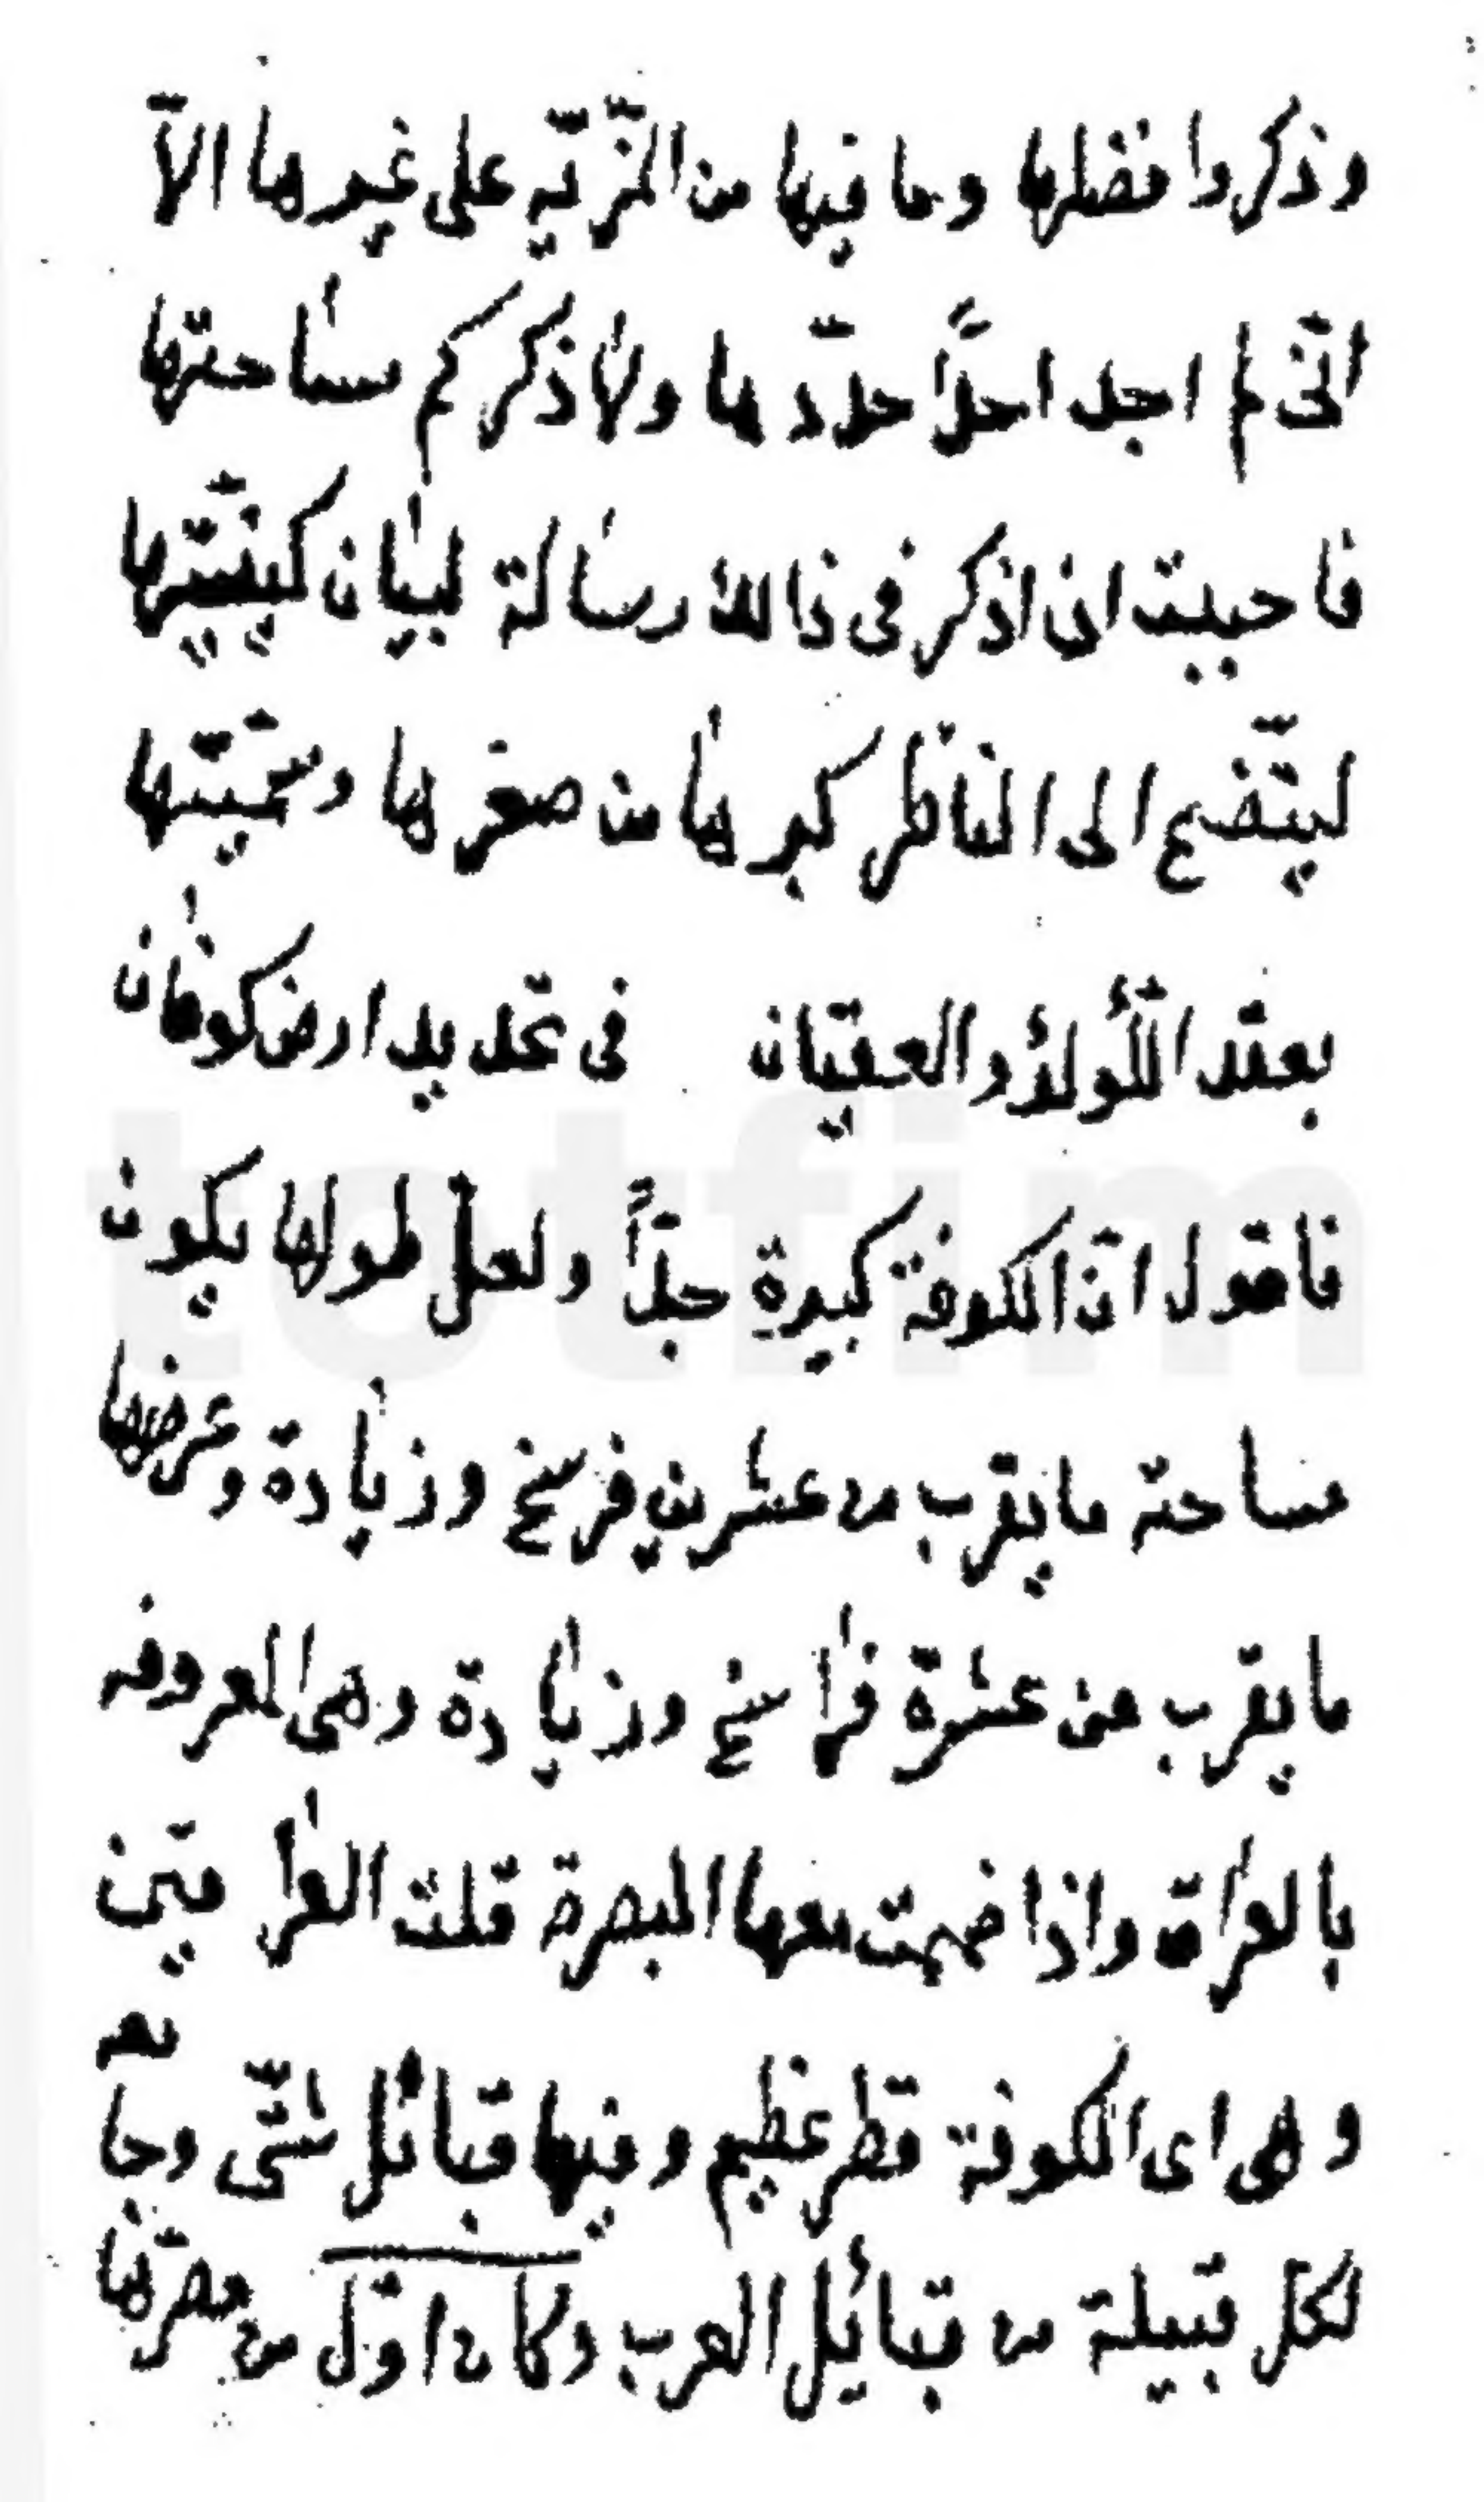 وذكروا فضلها وما فيها من المزّيّه على غيرها الاّ
انّى لم اجد احداً حدّدها ولا ذكر كم مساحتها
فاحببت ان اذكر فى ذالك رسالة لبيان كيفيّتها
ليتّضح الى الناظر كبرها من صغرها وسمّيتها
بعقد اللّؤلؤ والعقيان فى تحديد ارض كوفان
فاقول انّ الكوفة كبيرة جدّاً ولعل طولها يكون
مساحة ما يقرب من عشرين فرسخ وزيادة وعرضها
ما يقرب من عشرة فراسخ وزيادة وهى المعروفه
بالعراق واذا ضممت معها البصرة قلت العراقين
وهى اى الكوفة قطر عظيم وفيها قبائل شتّى وجامعه
لكل قبيلة من قبائل العرب وكان اوّل من مصّرها
totfim